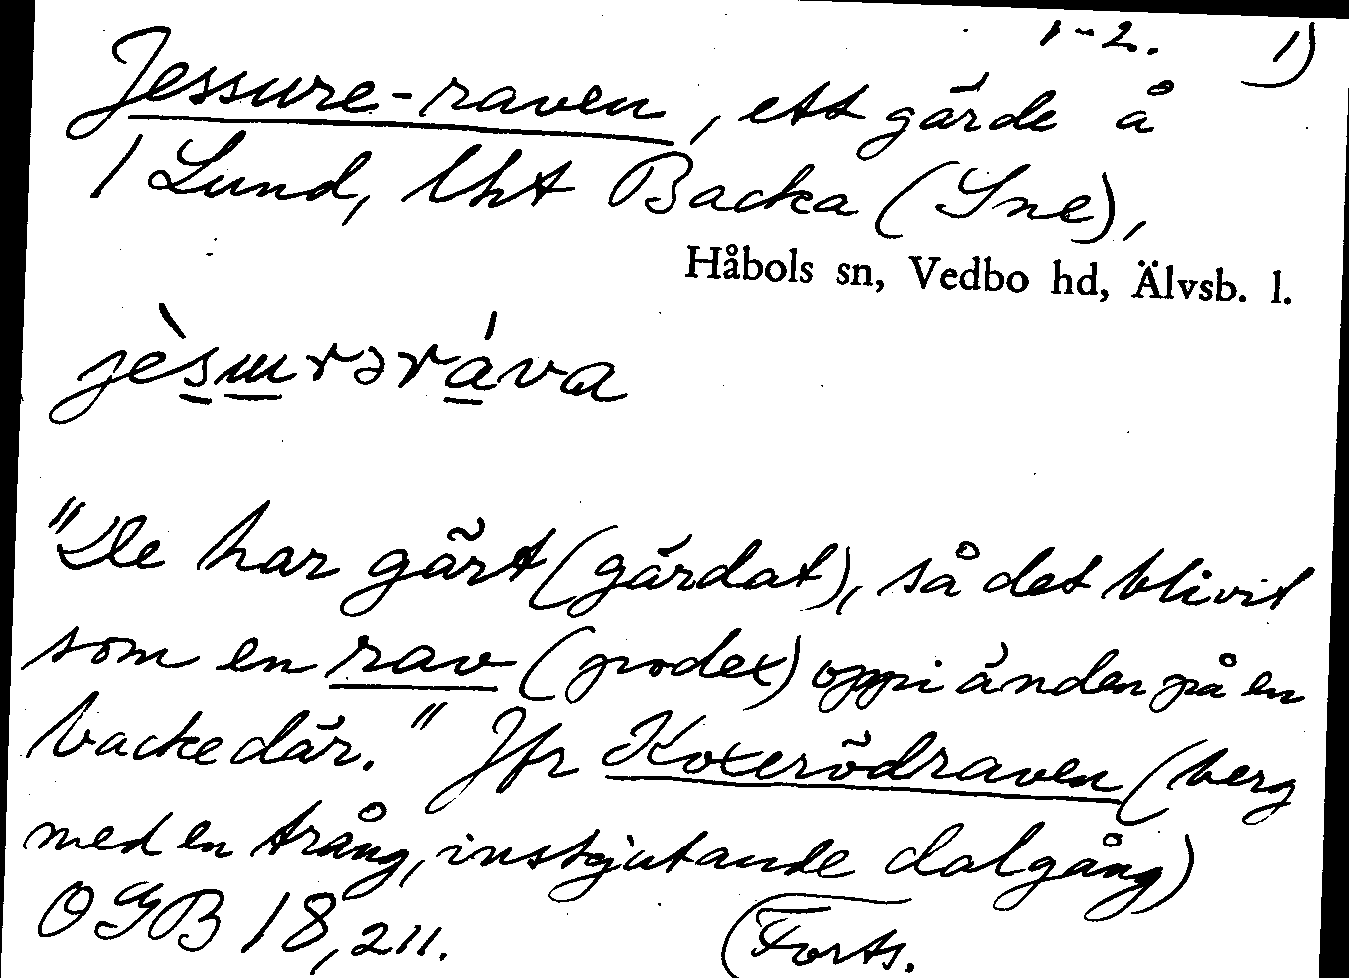 1-2. 1)
Jessure-raven, ett gärde å
1 Lund, lht Backa (Sne),
Håbols sn, Vedbo hd, Älvsb. l.
jèsɯrəráva
"De har gärt (gärdat), så det blivit
som en rav (podex) oppi änden på en
backe där." Jfr Koxerödraven (berg
med en trång, inskjutande dalgång)
OGB 18, 211. (Forts.